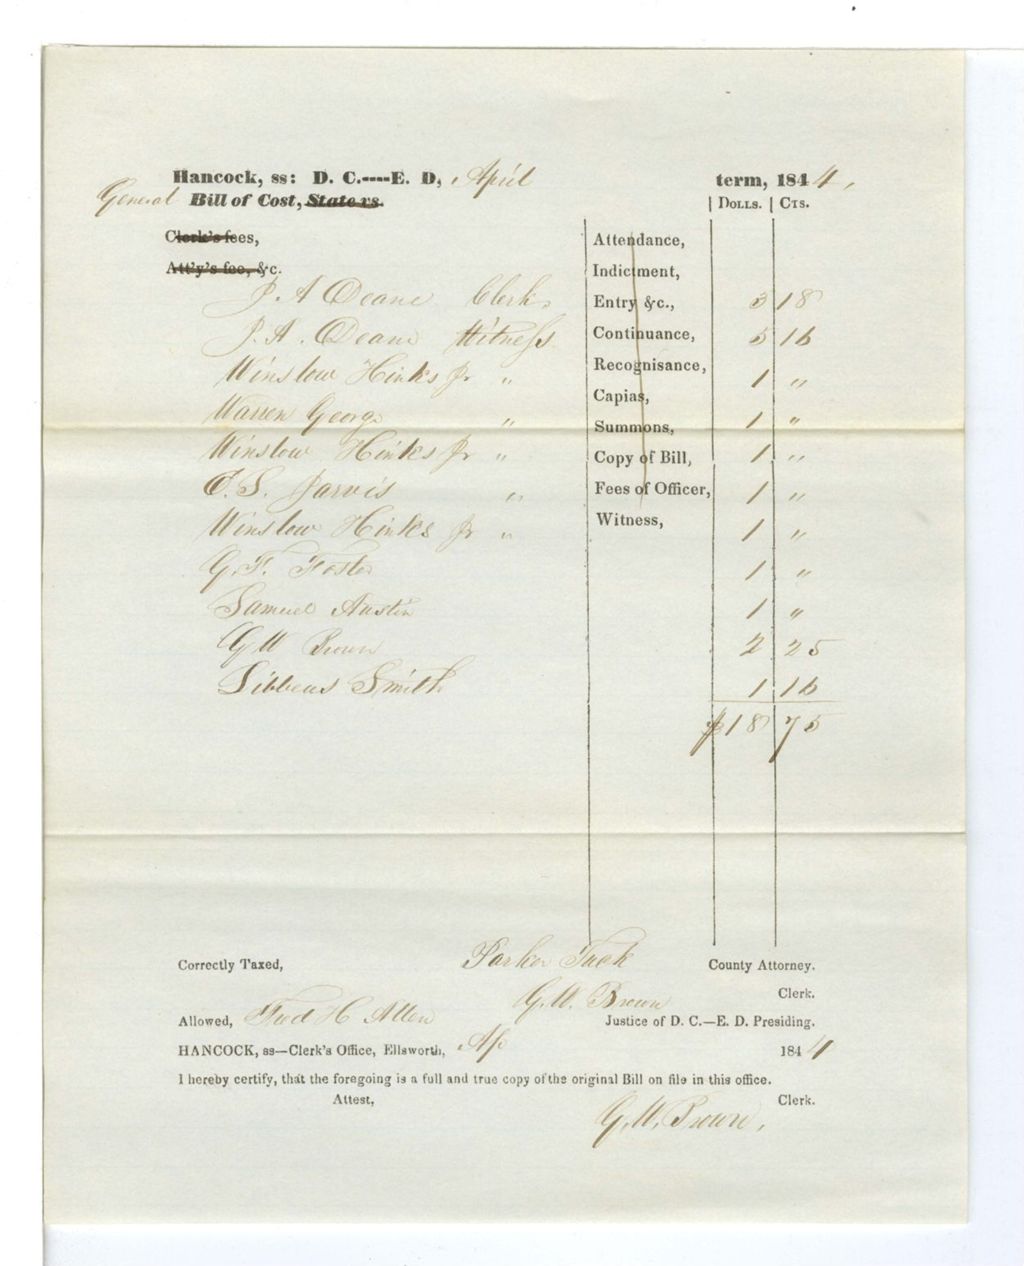 Hancock, ss: D. C.----E. D, April term, 1844,
General Bill of Cost, State vs. DOLLS. CTS.
Clerk's fees, Attendance,
Att'y's fee, &c. Indictment,
J. A Deane Clerk, Entry &c., 3 18
J. A. Deane Witness Continuance, 5 16
Winslow Hinks Jr " Recognisance, 1 "
Warren George " Capias, 1 "
Winslow Hinks Jr " Summons, 1 "
C. S. Jarvis " Copy of Bill, 1 "
Winslow Hinks Jr " Fees of Officer, 1 "
Witness,
G. F. Foster 1 "
Samuel Austin 1 "
G W Brown 2 25
Gibbens Smith 1 16
$18 75
Correctly Taxed, Parker Tuck County Attorney.
G. W. Brown Clerk.
Allowed, Fred H Allen Justice of D. C.—E. D. Presiding.
HANCOCK, ss—Clerk's Office, Ellsworth, Ap 1844
I hereby certify, that the foregoing is a full and true copy of the original Bill on file in this office.
Attest, Clerk.
G. W. Brown,